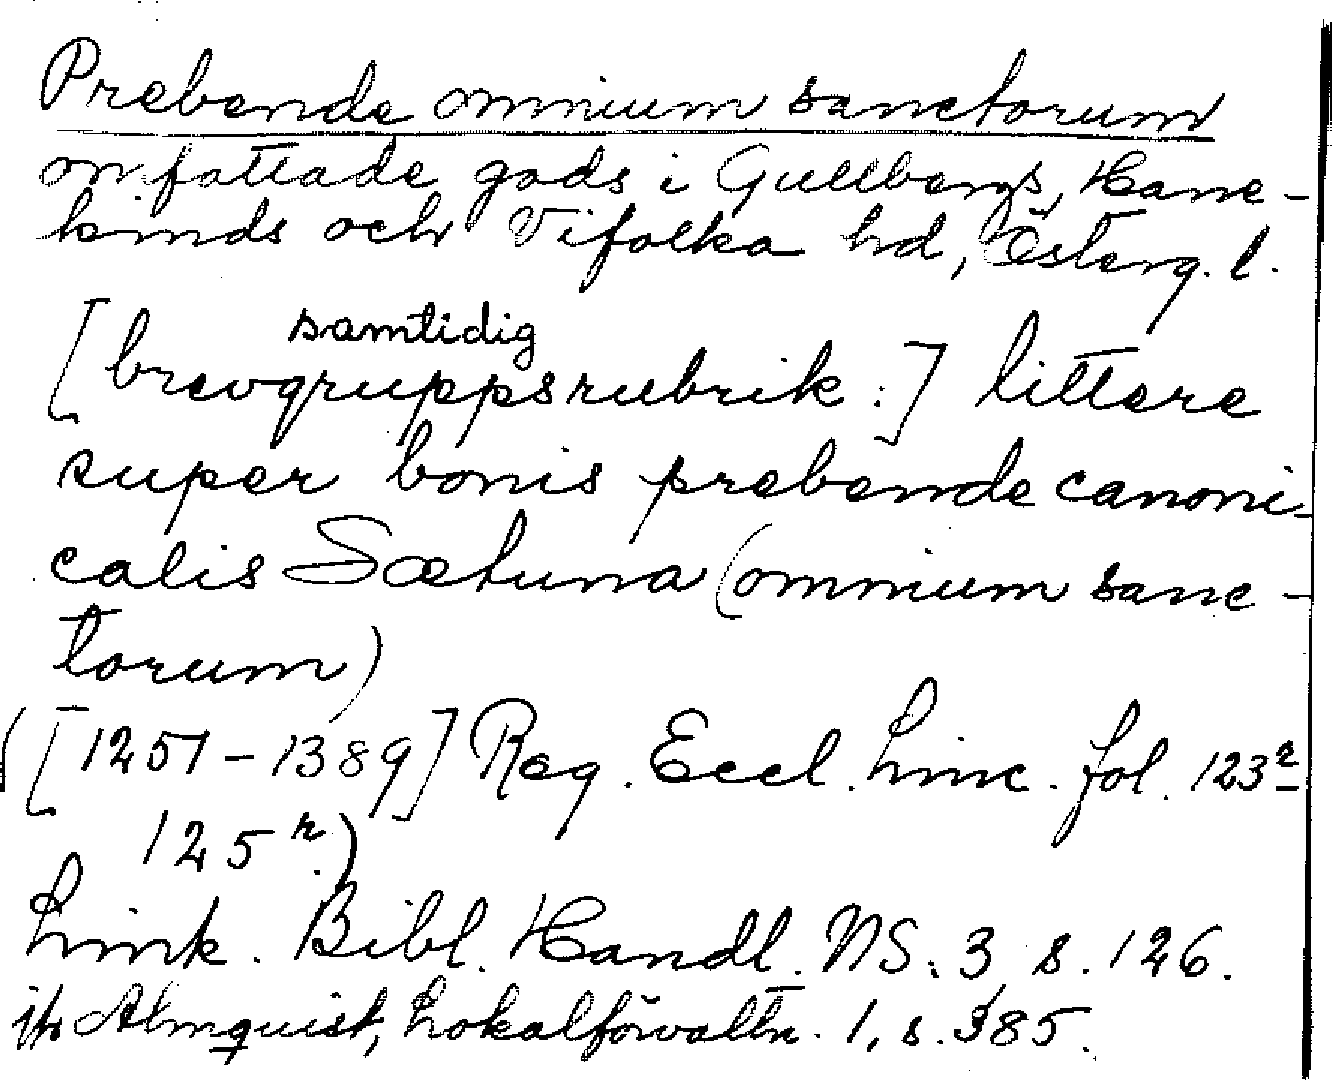 Prebende omnium sanctorum
omfattade gods i Gullbergs, Hane-
kinds och Vifolka hd, Österg. l.
samtidig
[brevgruppsrubrik:] littere
super bonis prebende canoni-
calis Sætuna (omnium sanc-
torum)
([1257-1389] Reg. Eccl. Linc. fol. 123r-
125r.)
Link. Bibl. Handl. NS. 3 s. 126.
jfr Almquist, Lokalförvaltn. 1, s. 385.